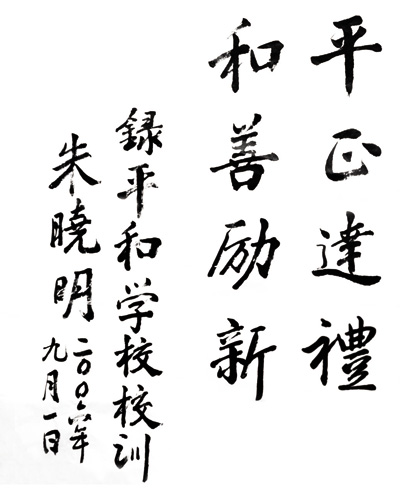 平正達禮
和善励新
録平和学校校训
朱曉明
二〇〇六年
九月一日